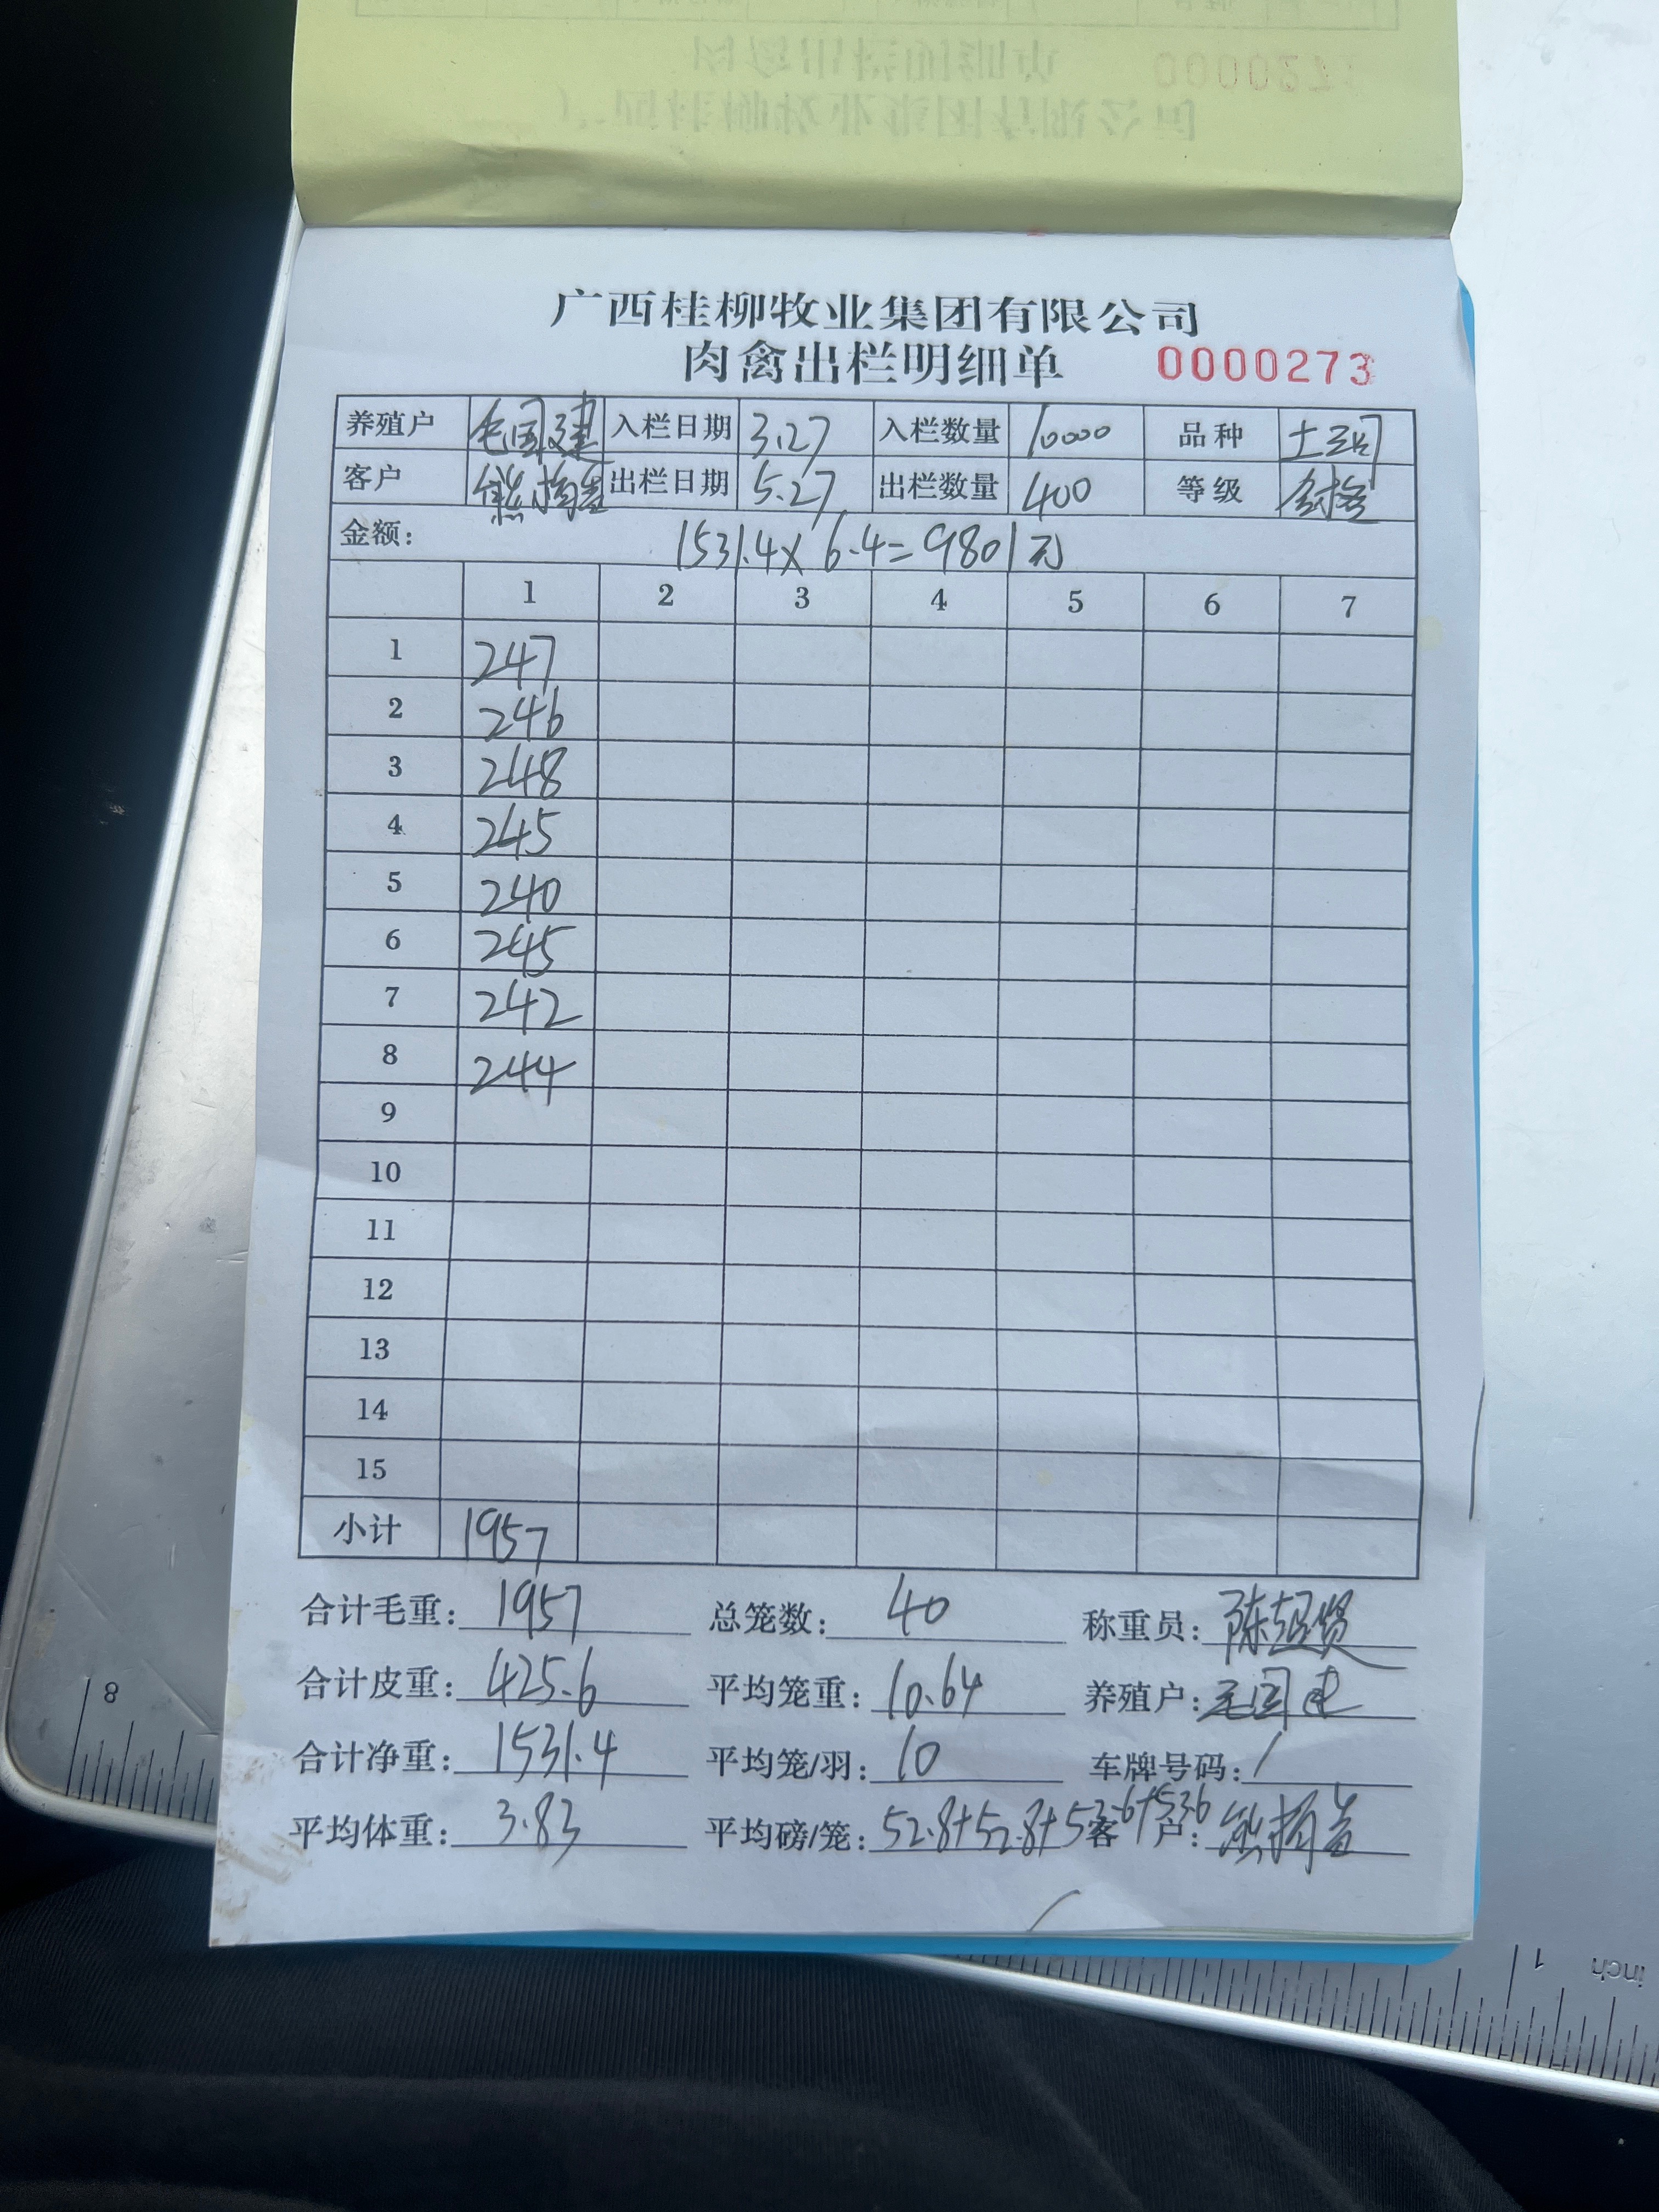 广西桂柳牧业集团有限公司
肉禽出栏明细单 0000273
养殖户 毛国建 入栏日期 3.27 入栏数量 10000 品种 土
客户 熊 出栏日期 5.27 出栏数量 400 等级
金额: 1531.4×6.4=9801元
1 2 3 4 5 6 7
1 247
2 246
3 248
4 245
5 240
6 245
7 242
8 244
9
10
11
12
13
14
15
小计 1957
合计毛重: 1957 总笼数: 40 称重员: 陈超贤
合计皮重: 425.6 平均笼重: 10.64 养殖户: 毛国建
合计净重: 1531.4 平均笼/羽: 10 车牌号码: /
平均体重: 3.83 平均磅/笼: 52.8+52.8+53.6+53.6 客户: 熊
8
1
inch